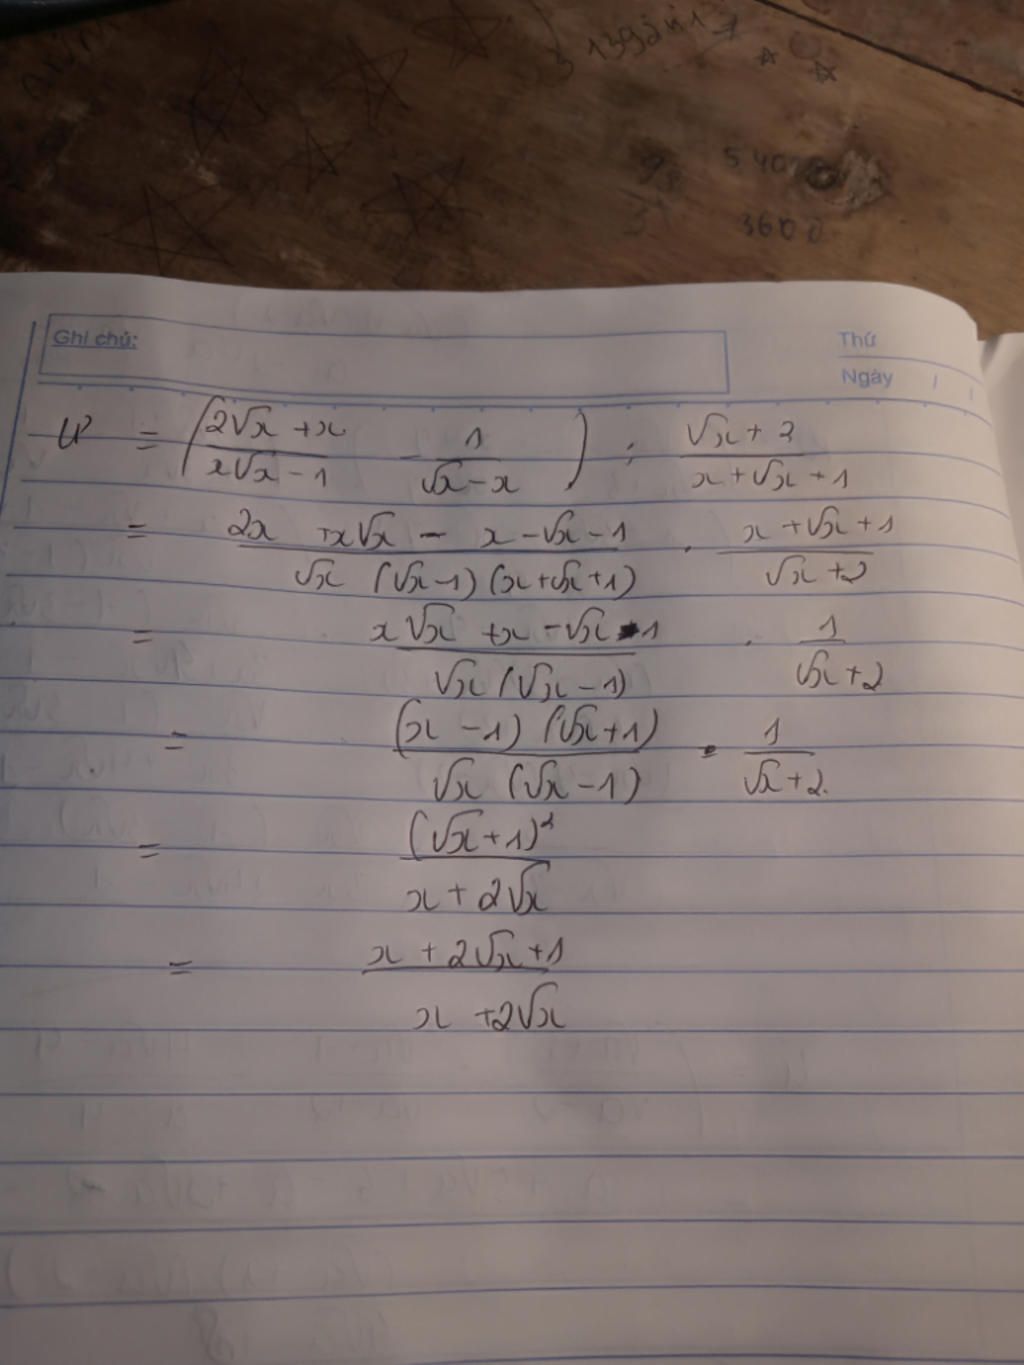 139
5 40
3600
Ghi chú:
Thứ
Ngày / /
W = (2√x + x / x√x - 1 - 1 / √x - x) : √x + 2 / x + √x + 1
= 2x + x√x - x - √x - 1 / √x (√x - 1) (x + √x + 1) . x + √x + 1 / √x + 2
= x√x + x - √x - 1 / √x (√x - 1) . 1 / √x + 2
= (x - 1) (√x + 1) / √x (√x - 1) . 1 / √x + 2.
= (√x + 1)² / x + 2√x
= x + 2√x + 1 / x + 2√x